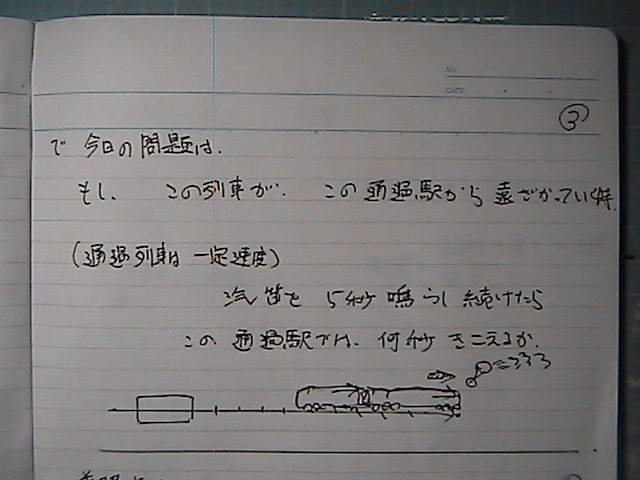 NO.
DATE
③
で 今日の問題は、
もし、 この列車が、 この通過駅から 遠ざかっていく時、
(通過列車は 一定速度)
汽笛を 5秒 鳴らし続けたら
この 通過駅では、何秒 きこえるか、